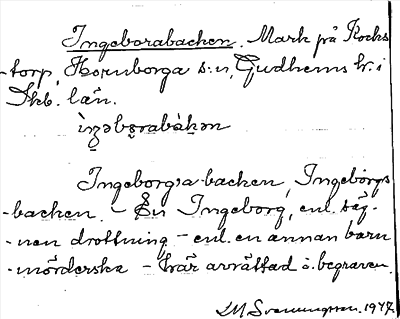 Ingeborabacken. Mark på Rocks
-torp, Hornborga s:n, Gudhems hr. i
Skb. län.
ìŋəbo̤rabàkən
Ingeborg'a-backen, Ingeborgs
-backen. - En Ingeborg, enl. säg-
-nen drottning - enl. en annan barn
-mörderska - här avrättad o. begraven.
1947.